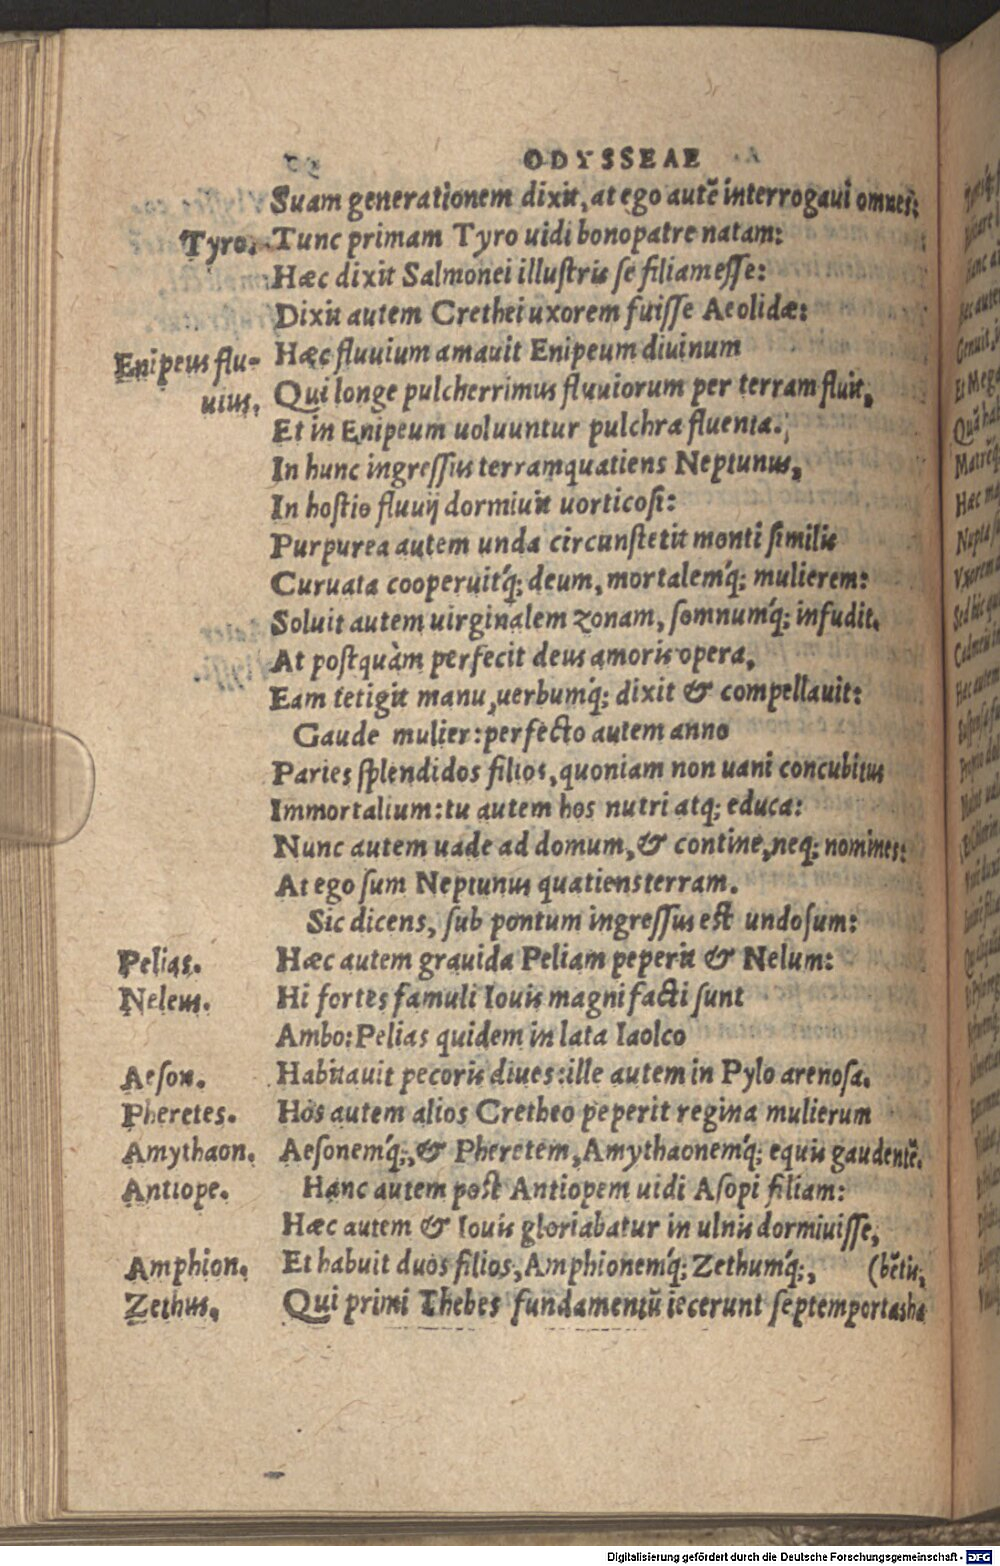 ODYSSEAE
Suam generationem dixit, at ego autē interrogaui omnes:
Tyro. Tunc primam Tyro uidi bono patre natam:
Hæc dixit Salmonei illustris se filiam esse:
Dixit autem Crethei uxorem fuisse Aeolidæ:
Enipeus flu- Hæc fluuium amauit Enipeum diuinum
uius. Qui longe pulcherrimus fluuiorum per terram fluit,
Et in Enipeum uoluuntur pulchra fluenta.
In hunc ingressus terram quatiens Neptunus,
In hostio fluuij dormiuit uorticosi:
Purpurea autem unda circunstetit monti similis
Curuata cooperuitq́; deum, mortalemq́; mulierem:
Soluit autem uirginalem zonam, somnumq́; infudit.
At postquàm perfecit deus amoris opera,
Eam tetigit manu, uerbumq́; dixit & compellauit:
Gaude mulier: perfecto autem anno
Paries splendidos filios, quoniam non uani concubitus
Immortalium: tu autem hos nutri atq; educa:
Nunc autem uade ad domum, & contine, neq; nomines:
At ego sum Neptunus quatiens terram.
Sic dicens, sub pontum ingressus est undosum:
Pelias. Hæc autem grauida Peliam peperit & Nelum:
Neleus. Hi fortes famuli Iouis magni facti sunt
Ambo: Pelias quidem in lata Iaolco
Aeson. Habitauit pecoris diues: ille autem in Pylo arenosa.
Pheretes. Hos autem alios Cretheo peperit regina mulierum
Amythaon. Aesonemq́;, & Pheretem, Amythaonemq́; equis gaudentē.
Antiope. Hanc autem post Antiopem uidi Asopi filiam:
Hæc autem & Iouis gloriabatur in ulnis dormiuisse,
Amphion. Et habuit duos filios, Amphionemq́; Zethumq́;, (bētis,
Zethus. Qui primi Thebes fundamentū iecerunt septem portas ha
Digitalisierung gefördert durch die Deutsche Forschungsgemeinschaft - DFG